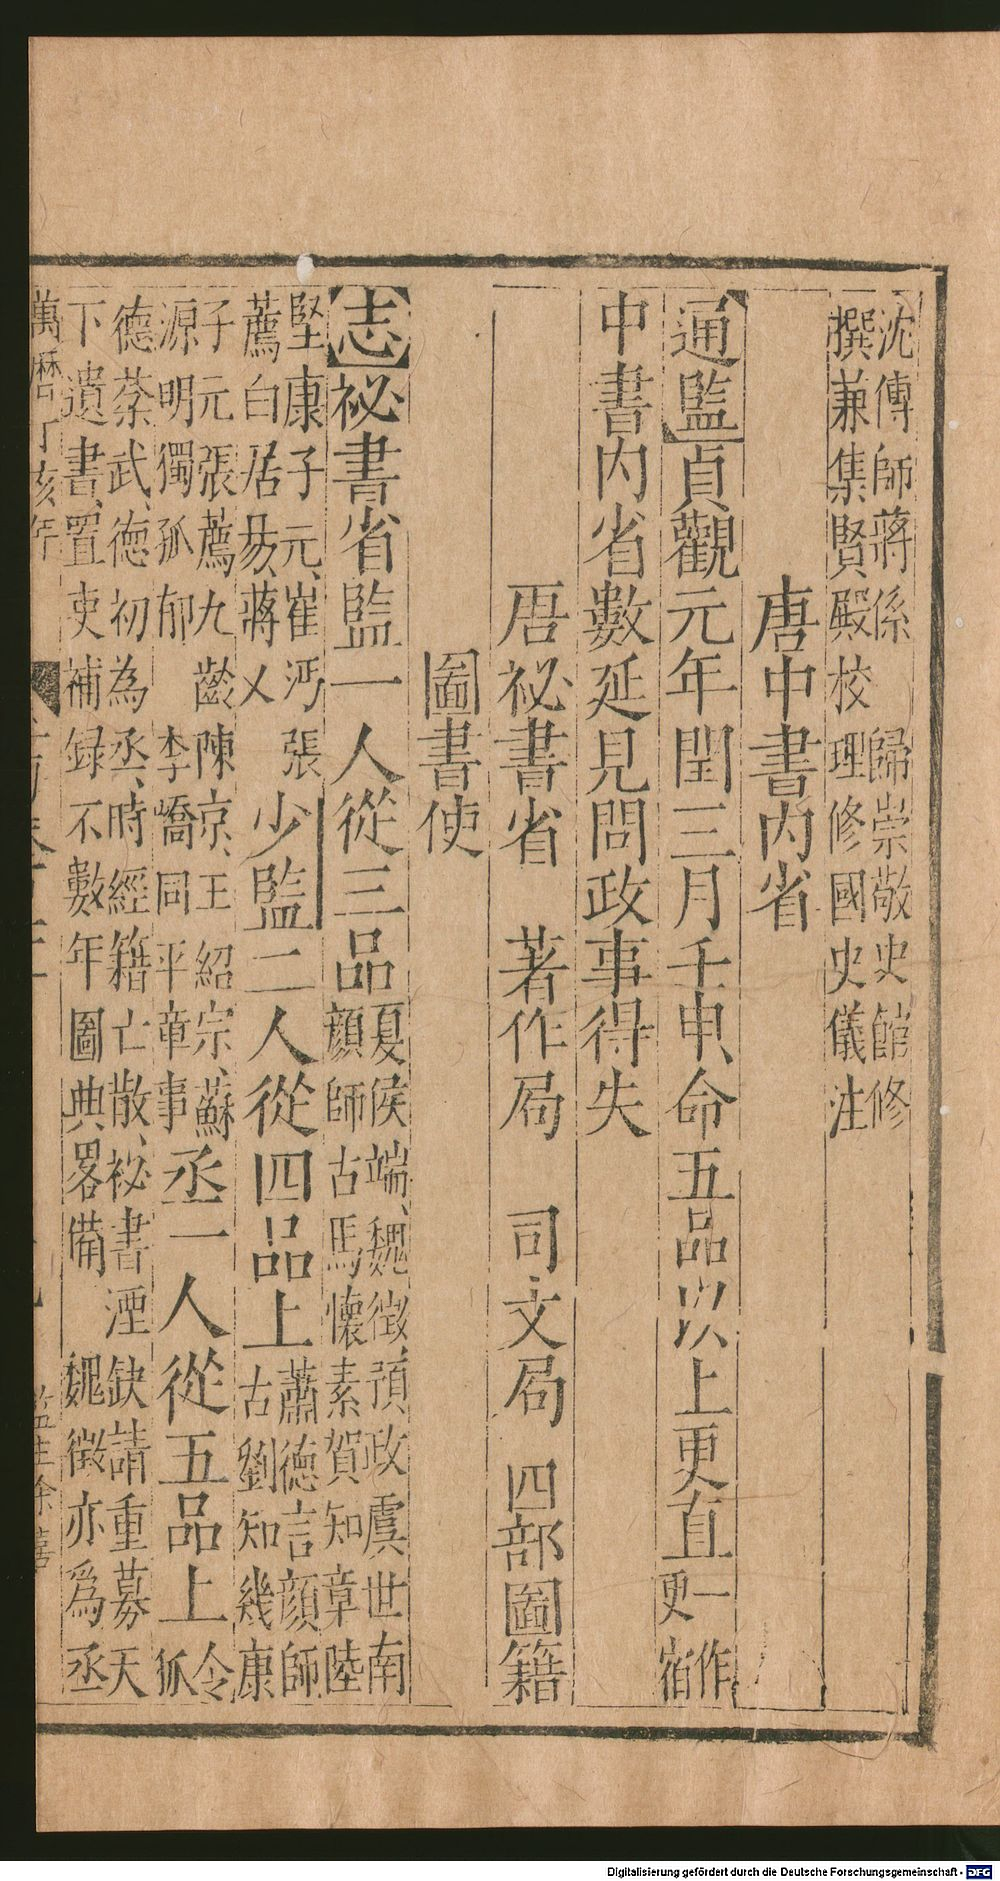 沈傳師蔣係　歸崇敬史館修
撰兼集賢殿校理修國史儀注
唐中書内省
通監貞觀元年閏三月壬申命五品以上更直一作更宿
中書内省數延見問政事得失
唐祕書省　著作局　司文局　四部圖籍
圖書使
志祕書省監一人從三品夏侯端魏徵預政虞世南
顔師古馬懷素賀知章陸
堅康子元崔沔張
薦白居易蔣乂少監二人從四品上蕭德言顔師
古劉知幾康
子元張薦九齡陳京王紹宗蘇
源明獨孤郁李嶠同平章事丞一人從五品上令
狐
德棻武德初為丞時經籍亡散祕書湮缺請重募天
下遺書置吏補録不數年圖典畧備　魏徵亦爲丞
萬曆丁亥年
Digitalisierung gefördert durch die Deutsche Forschungsgemeinschaft - DFG